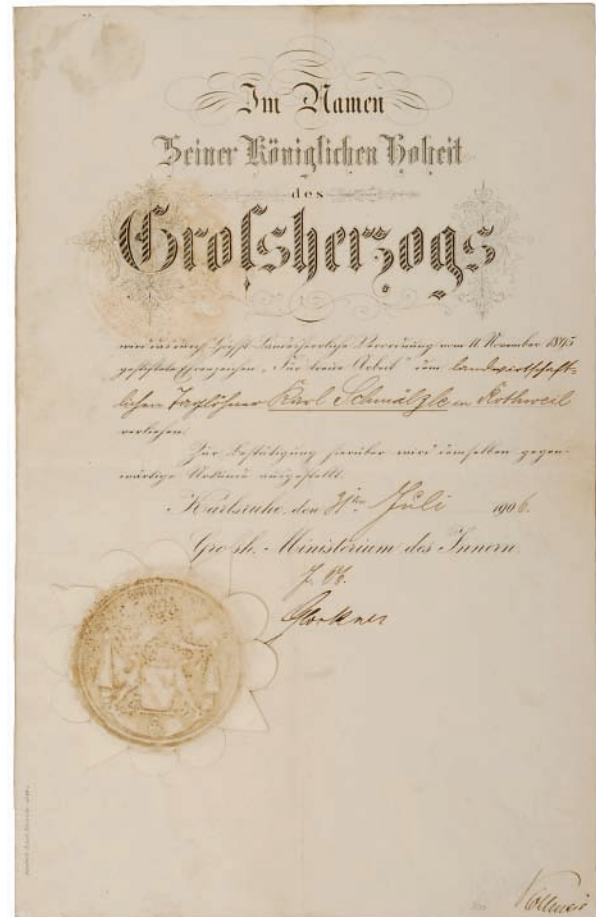 Im Namen
Seiner Königlichen Hoheit
des
Großherzogs
wird das durch Höchst-Landesherrliche Verordnung vom 11. November 1895
gestiftete Ehrenzeichen „Für treue Arbeit“ dem landwirtschaft-
lichen Taglöhner Karl Schmälzle in Rothweil
verliehen.
Zur Bestätigung hierüber wird demselben gegen-
wärtige Urkunde ausgestellt.
Karlsruhe, den 31ten Juli 1906.
Grosh. Ministerium des Innern.
J. V.
Glockner